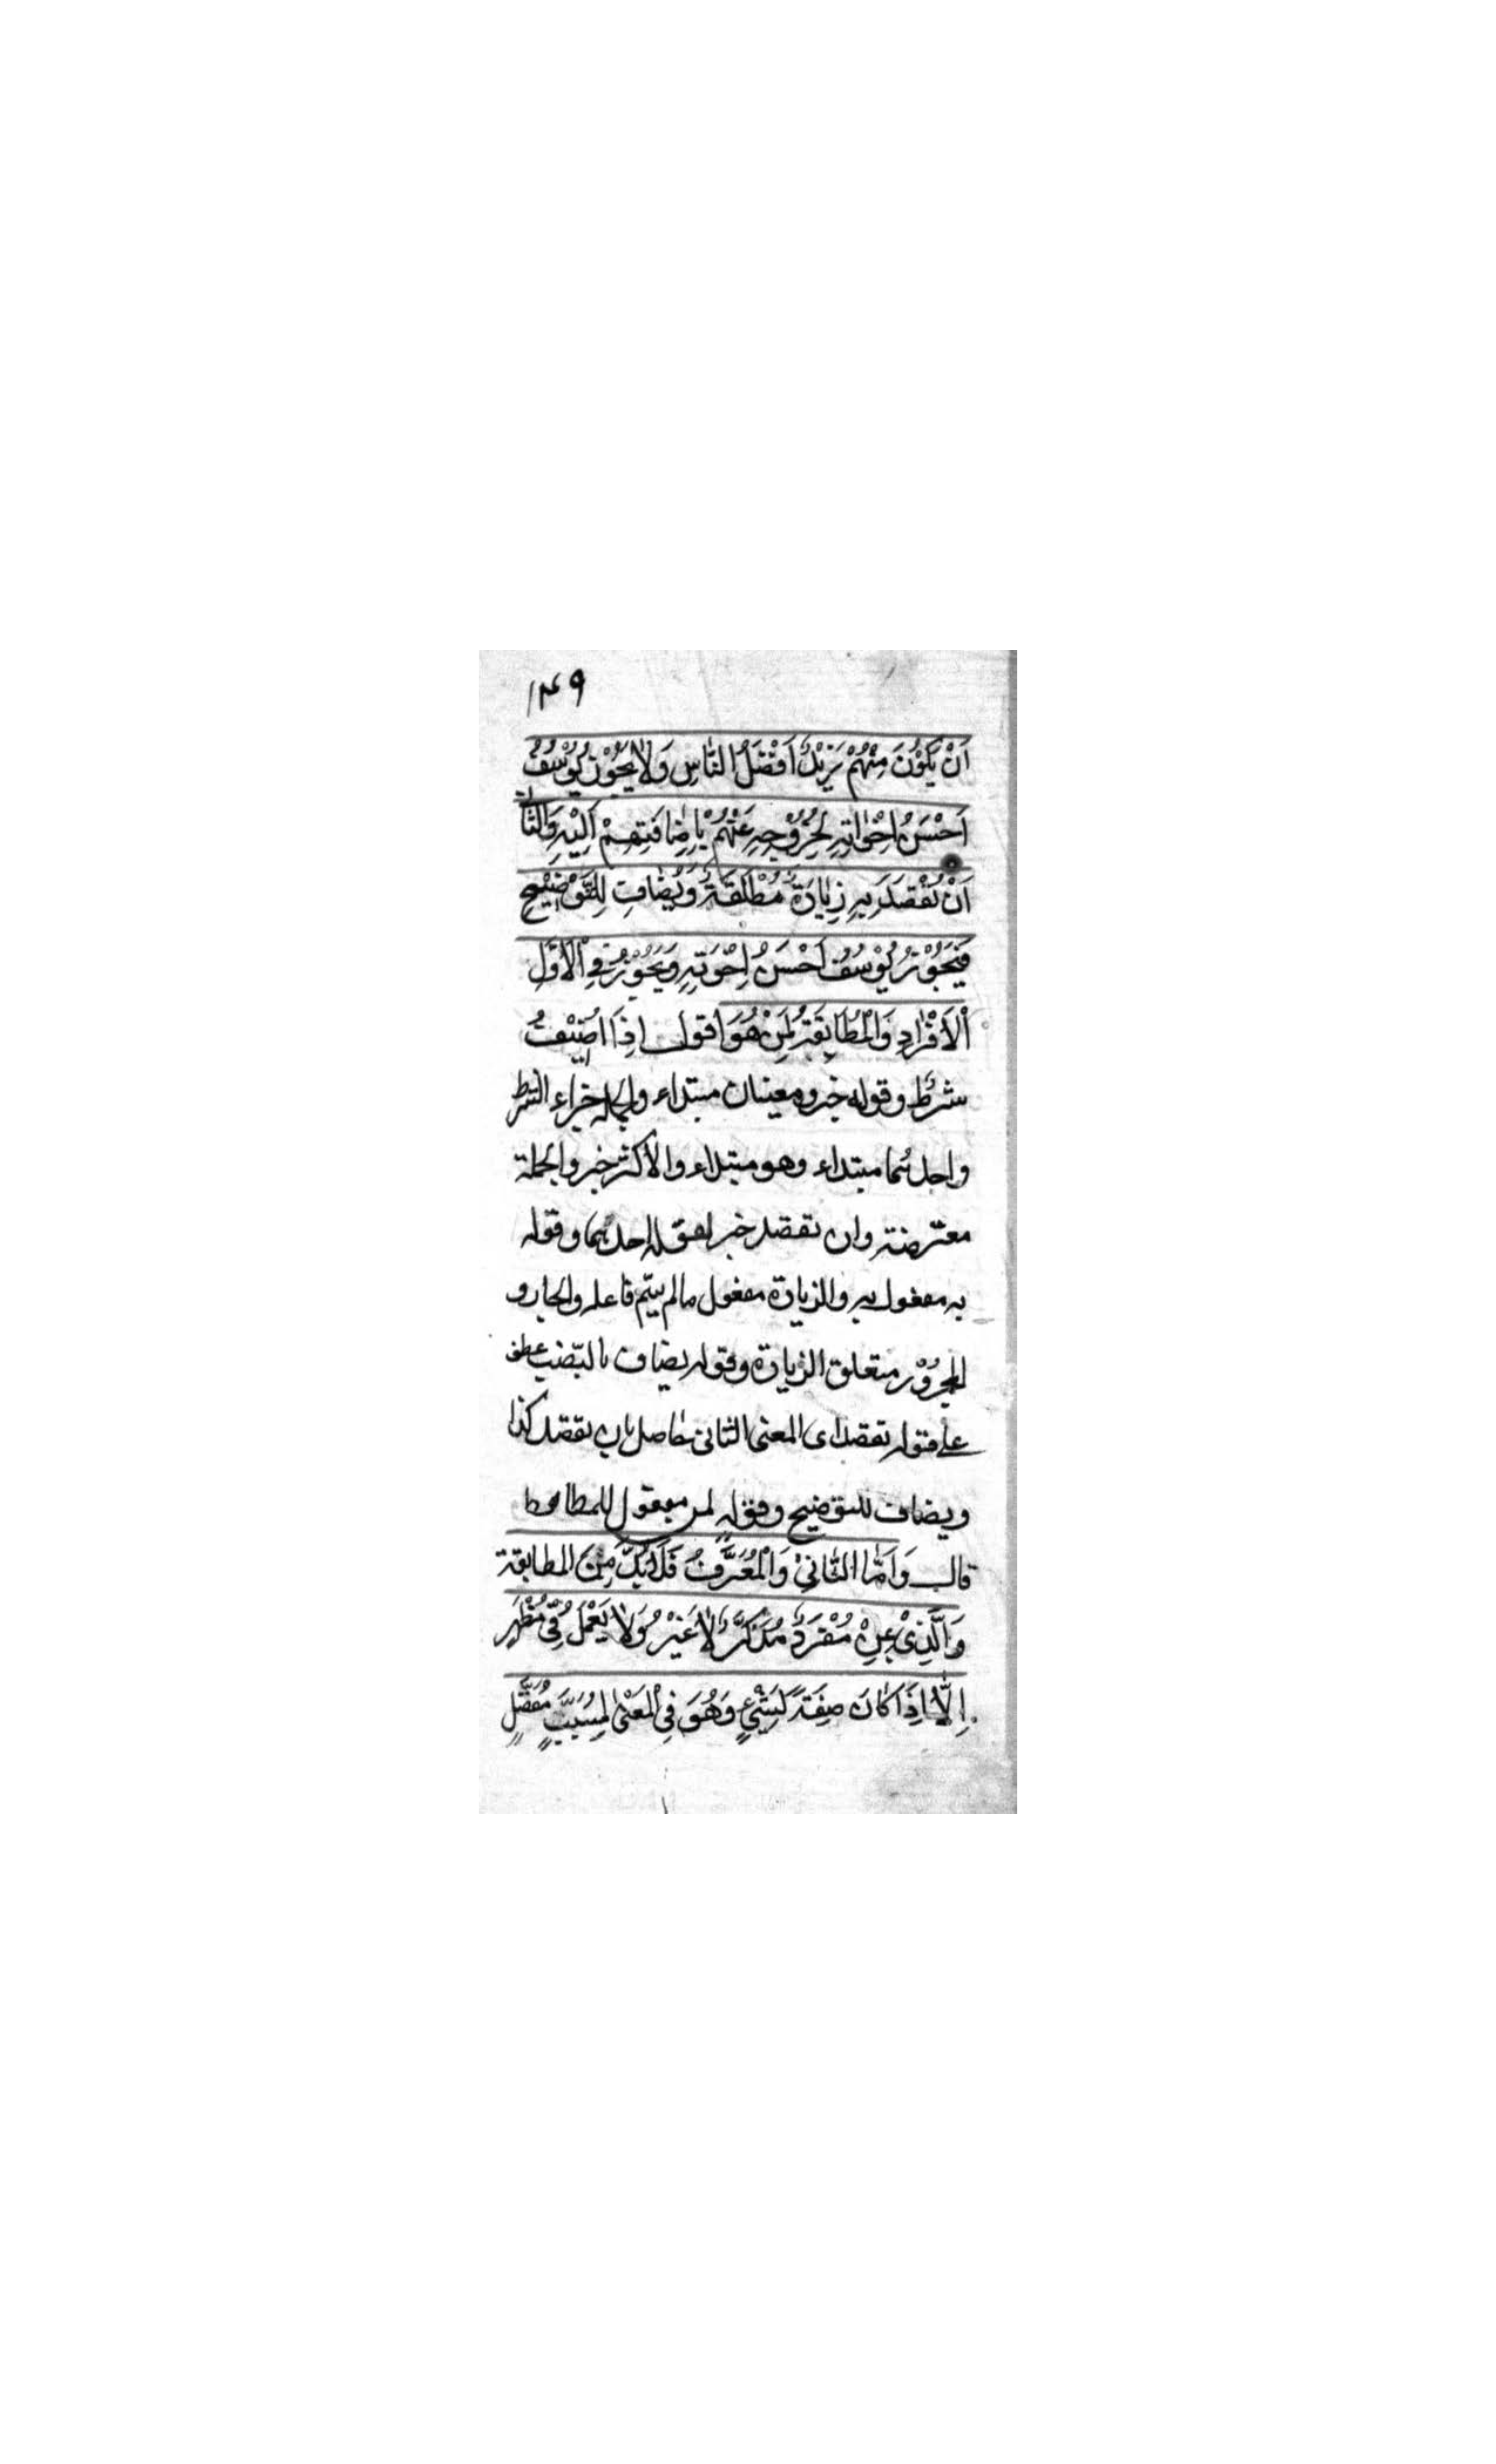 ۱۴۹
اَنْ يَكُوْنَ مِنْهُمْ زَيْدٌ اَفْضَلُ النَّاسِ وَلَا يَجُوْزُ يُوْسُفُ
اَحْسَنُ اِخْوَاتِهِ لِخُرُوْجِهِ عَنْهُمْ بِاِضَافَتِهِمْ اِلَيْهِ وَالثَّانِي
اَنْ تُقْصَدَ بِهِ زِيَادَةٌ مُطْلَقَةٌ وَيُضَافَ لِلتَّوْضِيْحِ
فَيَجُوْزُ يُوْسُفُ اَحْسَنُ اِخْوَتِهِ وَيَجُوْزُ فِي الْاَوَّلِ
الْاَفْرَادِ وَالْمُطَابَقَةُ لِمَنْ هُوَ اقول اِذَا اُضِيْفَتْ
شرطٌ وقوله خبره معنيان مبتداء والجملة جزاء الشرط
واحدهما مبتداء وهو مبتداء والأكثر خبر والجملة
معترضة وان تقصد خبر لقوله احدهما وقوله
به مفعول به والزيادة مفعول مالم يسّم فاعله والجار و
المجرُوْر متعلق الزيادة وقوله يضاف بالنّصب عطف
علے قوله تقصد اى المعنى الثانى حاصل بان تقصد كذا
ويضاف للتوضيح وقوله لمن مفعول للمطابقة
قال وَاَمَّا الثَّانِيْ وَالْمُعَرَّفُ فَلَا بُدَّ مِنَ المطابقة
وَالَّذِيْ بِمِنْ مُفْرَدٌ مُذَكَّرٌ لَا غَيْرُ وَلَا يَعْمَلُ فِيْ مُظْهَرٍ
اِلَّا اِذَا كَانَ صِفَةً لِشَيْءٍ وَهُوَ فِي الْمَعْنٰى لِمُسَبَّبٍ مُفَضَّلٍ